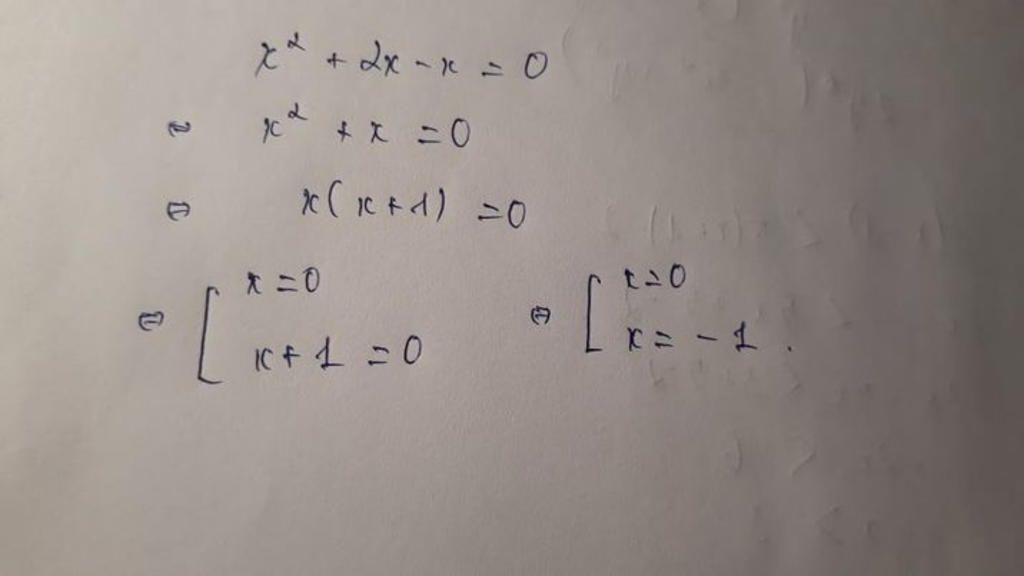 x² + 2x - x = 0
⇔ x² + x = 0
⇔ x(x+1) = 0
⇔ [ x = 0 ⇔ [ x = 0
x + 1 = 0 x = -1.